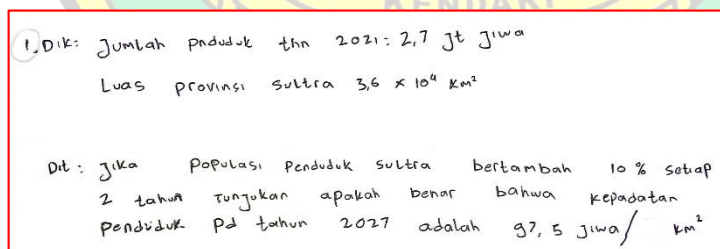 KENDARI
1. Dik: Jumlah pnduduk thn 2021: 2,7 jt Jiwa
Luas provinsi sultra 3,6 x 10⁴ km²
Dit: Jika populasi penduduk sultra bertambah 10% setiap
2 tahun Tunjukan apakah benar bahwa kepadatan
penduduk pd tahun 2027 adalah 97,5 jiwa/ km²